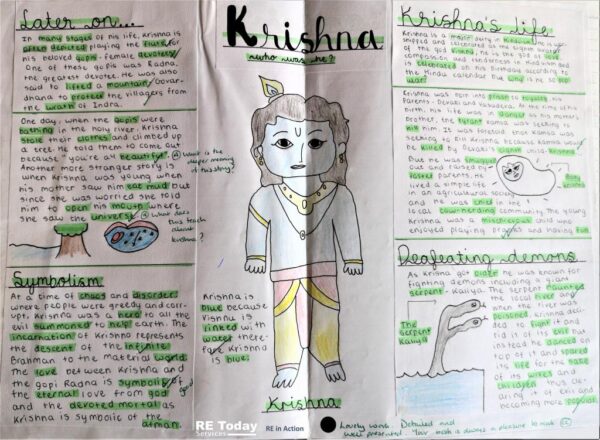 Later on...
In many stages of his life, Krishna is
often depicted playing the flute, for
his beloved gopis - female devotees.
One of these gopis was Radna,
the greatest devotee. He was also
said to lifted a mountain/Govar-
dhana to protect the villagers from
the wrath of Indra.
One day, when the gopis were
bathing in the holy river, Krishna
stole their clothes and climbed up
a tree. He told them to come out
because "you're all beautiful".
What is the
deeper meaning
of this story?
Another more stranger story is
when Krishna was young when
his mother saw him eat mud but
since she was worried she told
him to open his mouth where
she saw the universe.
What does
this teach
about
Krishna?
Symbolism
At a time of chaos and disorder
where people were greedy and corr-
upt, Krishna was a hero to all the
evil summoned to help earth. The
incarnation of Krishna represents
the descent of the infinite
Brahman to the material world. The
love between Krishna and
the gopi Radna is symbolic of
the eternal love from god
and the devoted mortal as
Krishna is symbolic of the
atman.
Krishna
who was he?
Krishna is
blue because
Vishnu is
linked with
water there-
fore Krishna
is blue.
Krishna
RE Today
Services
RE in Action
Krishna's life
Krishna is a major deity in Hinduism. He is wor-
shipped and celebrated as the eighth avatar
of the god Vishnu, he is the god of love,
compassion and tenderness in Hinduism and
is celebrated on his birthday according to
the Hindu calendar
Krishna was born into prison to
Parents - Devaki and Vasudeva. At the time of his
birth, his life was in danger as his mothers
brother, the tyrant Kamsa was seeking to
kill him. It was foretold that Kamsa was
seeking to kill Krishna because Kamsa would
be killed by Devaki's eighth child - Krishna.
But he was smuggled
out and raised by
foster parents.
lived a simple life
in an agricultural society
and he was child in the
local cow-herding community. The young
Krishna was a mischievous child who
enjoyed playing pranks and having fun.
Baby
Krishna
Defeating demons
As Krishna got older he was known for
fighting demons including a giant
serpent - Kaliya. The serpent haunted
the local river and
when the river was
poisoned, Krishna deci-
ded to fight it and
rid it of its evil but
instead he danced on
top of it and spared
its life for the sake
of its wives and
children thus cle-
aring it of evil and
becoming more popular.
The
Serpent
Kaliya
Lovely work. Detailed and
well presented. Your book is always a pleasure to mark